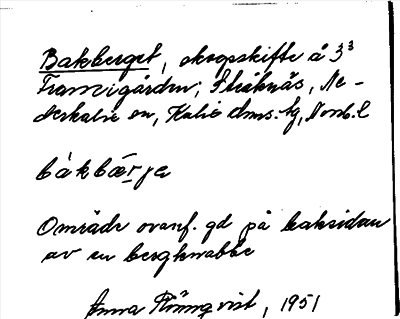 Bakberget, skogsskifte å 3³
Framigården, Stråknäs, Ne-
derkalix sn, Kalix dms. tg, Nonb. l
bàkbær̲ja
Område ovanf. gd på baksidan
av en bergknabbe
Anna Rönnqvist, 1951